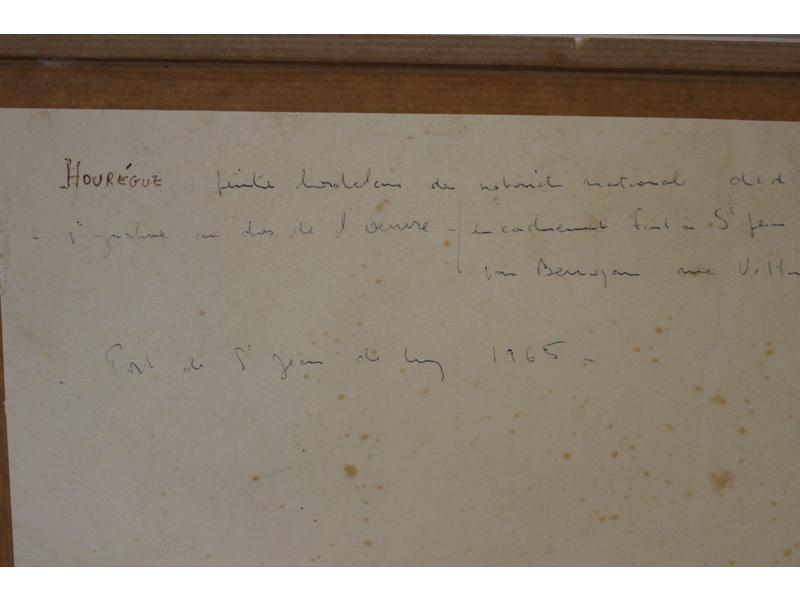 HOURÉGUE peintre bordelais de notoriété national
- signature au dos de l'œuvre - encadrement fait à St Jean
par rue
Port de St Jean de Luz 1965 -